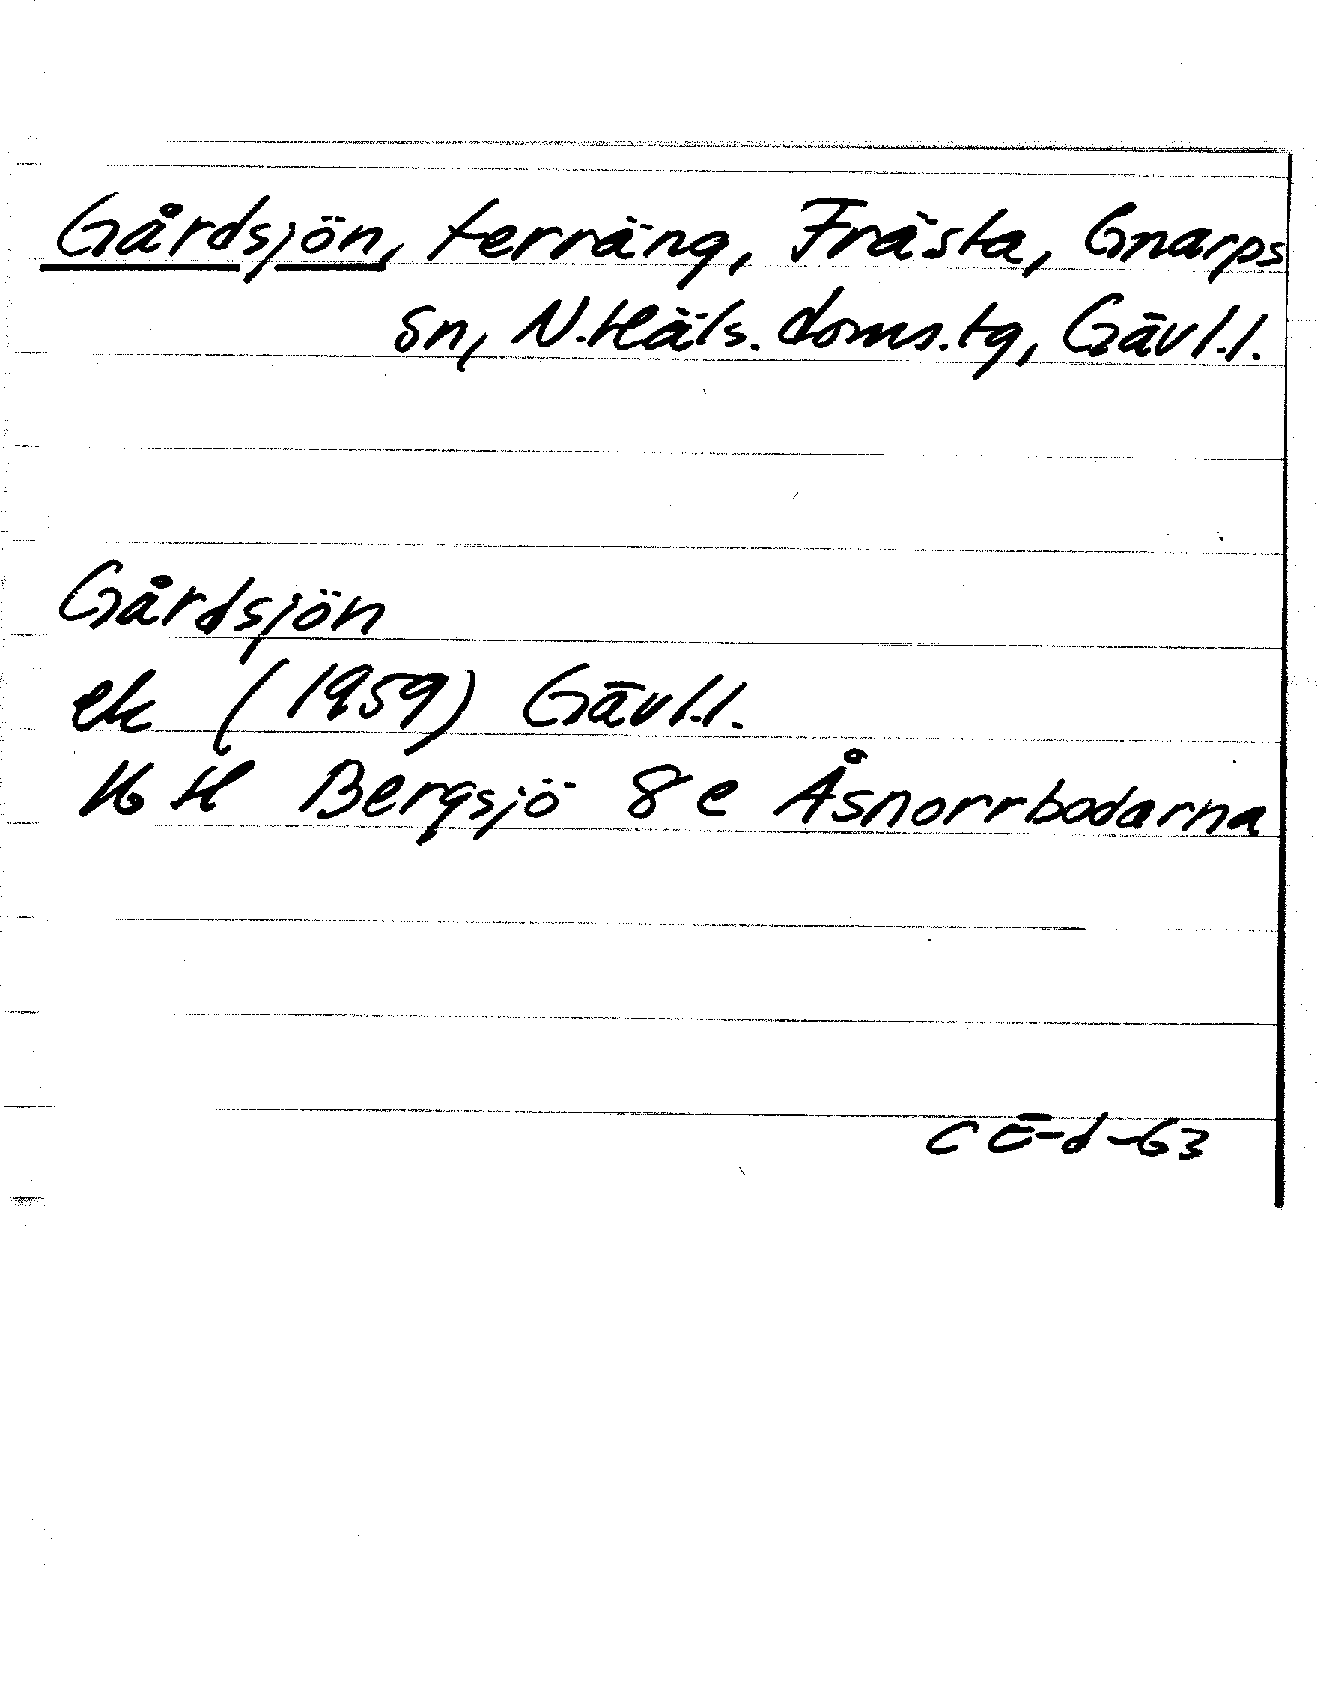 Gårdsjön, terräng, Frästa, Gnarps
sn, N.Häls. doms.tg, Gävl.l.
Gårdsjön
ek (1959) Gävl.l.
16 H Bergsjö 8 e Åsnorrbodarna
CE-d-63